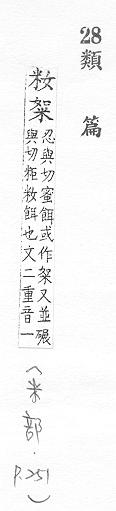 28類 篇
籹䊯
忍與切蜜餌或作䊯又並碾
與切粔籹餌也文二重音一
(米部．P.251)